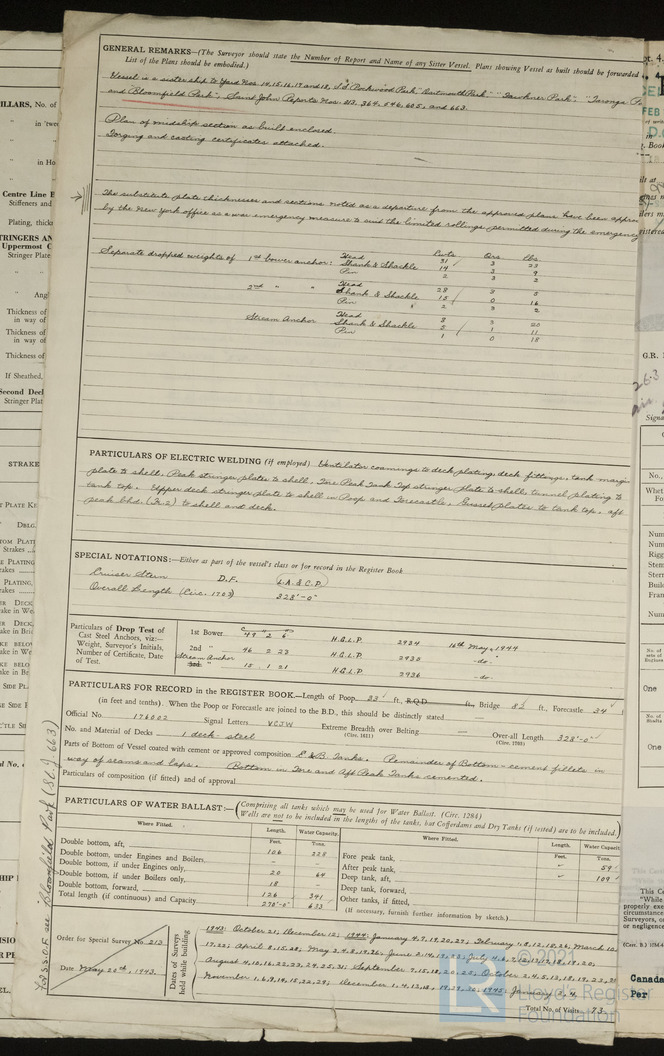 GENERAL REMARKS—(The Surveyor should state the Number of Report and Name of any Sister Vessel. Plans showing Vessel as built should be forwarded
List of the Plans should be embodied.)
Vessel is a sister ship to Yard Nos. 14, 15, 16, 17 and 18, S.S. "Rockwood Park" "Dartmouth Park" "Fawkner Park", "Taronga Pa
and "Bloomfield Park", Saint John Reports Nos. 213, 364, 546, 605, and 663.
Plan of midship section as built enclosed.
Forging and casting certificates attached.
The substitute plate thicknesses and sections noted as a departure from the approved plans have been appro
by the New York office as a war emergency measure to suit the limited rollings permitted during the emergency
Cwts Qrs lbs
Separate dropped weights of 1st bower anchor: Head 31 3 23
Shank & Shackle 14 3 9
Pin 2 3 2
2nd " " Head 28 2 5
Shank & Shackle 15 0 16
Pin 2 3 2
Stream Anchor Head 8 3 20
Shank & Shackle 5 1 11
Pin 1 0 18
PARTICULARS OF ELECTRIC WELDING (if employed) Ventilator coamings to deck plating, deck fittings, tank margin
plate to shell, Peak stringer plates to shell, Fore Peak Tank Top stringer plate to shell, tunnel plating to
tank top. Upper deck stringer plate to shell in Poop and Forecastle, Gusset plates to tank top, aft
peak bhd. (Fr. 2) to shell and deck.
SPECIAL NOTATIONS:—Either as part of the vessel's class or for record in the Register Book
Cruiser Stern D.F. L.A. & C.P.
Overall Length (Circ. 1703) 328'-0"
Particulars of Drop Test of
Cast Steel Anchors, viz:—
Weight, Surveyor's Initials,
Number of Certificate, Date
of Test.
1st Bower 49 2 6 H.G.L.P. 2934 16th May, 1944
2nd " 46 2 23 H.G.L.P. 2935 -do-
Stream Anchor 15 1 21 H.G.L.P. 2936 -do-
PARTICULARS FOR RECORD in the REGISTER BOOK.—Length of Poop 33 ft., R.Q.D. ft., Bridge 82 ft., Forecastle 34
(in feet and tenths). When the Poop or Forecastle are joined to the B.D., this should be distinctly stated
Official No. 176002 Signal Letters VCJW Extreme Breadth over Belting (Circ. 1611) — Over-all Length 328'-0" (Circ. 1703)
No. and Material of Decks 1 deck - steel
Parts of Bottom of Vessel coated with cement or approved composition E & B. Tanks. Remainder of Bottom - cement fillets in
way of seams and laps. Bottom in Fore and Aft Peak Tanks cemented.
Particulars of composition (if fitted) and of approval
PARTICULARS OF WATER BALLAST:—(Comprising all tanks which may be used for Water Ballast. (Circ. 1284)
Wells are not to be included in the lengths of the tanks, but Cofferdams and Dry Tanks (if tested) are to be included.)
Where Fitted. Length. Water Capacity. Where Fitted. Length. Water Capacity
Feet. Tons. Feet. Tons.
Double bottom, aft, 106 228 Fore peak tank, 59
Double bottom, under Engines and Boilers — — After peak tank, 109
Double bottom, if under Engines only, 20 64 Deep tank, aft,
Double bottom, if under Boilers only, 18 — Deep tank, forward,
Double bottom, forward, 126 341 Other tanks, if fitted,
Total length (if continuous) and Capacity 270'-0" 633 (If necessary, furnish further information by sketch.)
Order for Special Survey No. 213
Date May 20th, 1943.
Dates of Surveys
held while building
1943: October 21; December 12; 1944: January 4, 7, 19, 20, 27; February 1, 8, 12, 15, 26; March 10,
17, 22; April 8, 15, 28; May 3, 4, 8, 19, 26; June 2, 14, 19, 23; July 4, 6, 7, 12, 13, 17, 18, 19, 20;
August 4, 10, 16, 22, 23, 24, 25, 31; September 7, 15, 18, 20, 25; October 2, 4, 5, 13, 18, 19, 23, 21
November 1, 6, 9, 14, 15, 22, 29; December 1, 4, 13, 18, 19, 29, 30; 1945: January 3, 4,
Total No. of Visits 73
For S.S.O.F. see "Bloomfield Park" (St. J. 663)
© 2021
Lloyd's Register
Foundation
PILLARS, No. of
in 'twee
in Ho
Centre Line B
Stiffeners and
Plating, thick
STRINGERS AN
Uppermost C
Stringer Plate
Thickness of
in way of
Thickness of
in way of
Thickness of
If Sheathed,
Second Decl
Stringer Plat
STRAKE
G.R.
26.3
Signa
One
One
This Ce
"While
Canada
Per